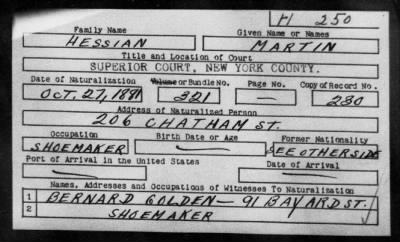 H 250
Family Name Given Name or Names
HESSIAN MARTIN
Title and Location of Court
SUPERIOR COURT, NEW YORK COUNTY.
Date of Naturalization Volume or Bundle No. Page No. Copy of Record No.
OCT. 27, 1891 321 — 230
Address of Naturalized Person
206 CHATHAM ST.
Occupation Birth Date or Age Former Nationality
SHOEMAKER — SEE OTHERSIDE
Port of Arrival in the United States Date of Arrival
— —
Names, Addresses and Occupations of Witnesses To Naturalization
1 BERNARD GOLDEN — 91 BAYARD ST.
2 SHOEMAKER